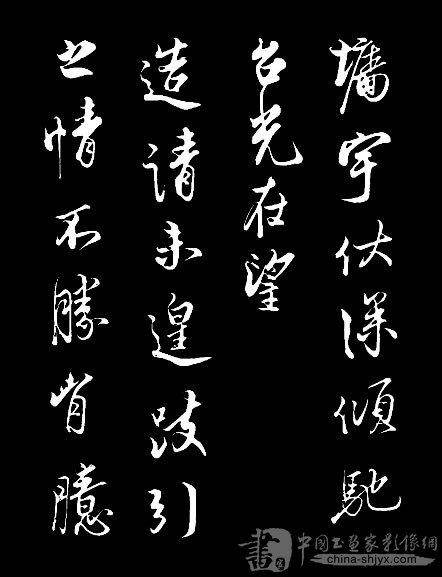 墉宇伏深傾馳
台光在望
造請未遑跂引
之情不勝胷臆
中國书画家影像網
china-shjyx.com